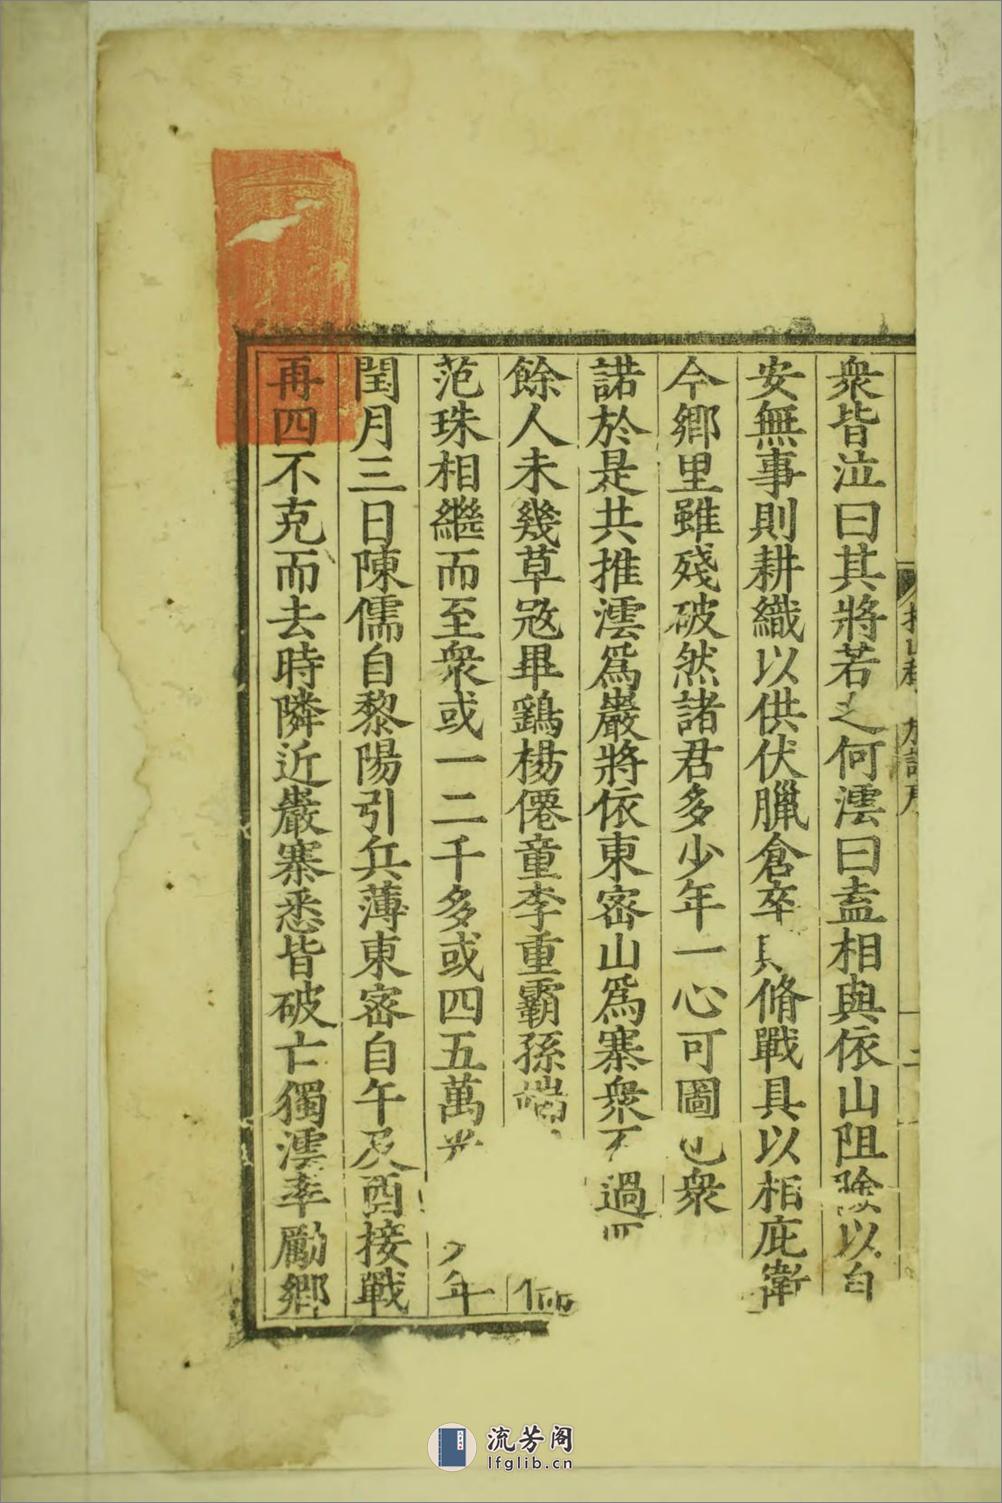 衆皆泣曰其將若之何澐曰盍相與依山阻險以自
安無事則耕織以供伏臘倉卒具脩戰具以相庇衛
今鄉里雖殘破然諸君多少年一心可圖也衆
諾於是共推澐爲巖將依東密山爲寨衆不過四
餘人未幾草宼畢鷂楊僊童李重霸孫端
范珠相繼而至衆或一二千多或四五萬年
閏月三日陳儒自黎陽引兵薄東密自午及酉接戰
再四不克而去時隣近巖寨悉皆破亡獨澐率勵鄉
流芳阁
lfglib.cn